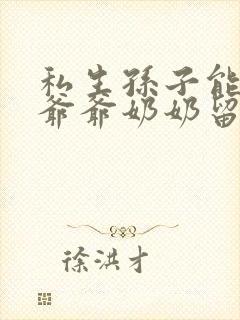 私生孫子能
爺爺奶奶留
徐洪才